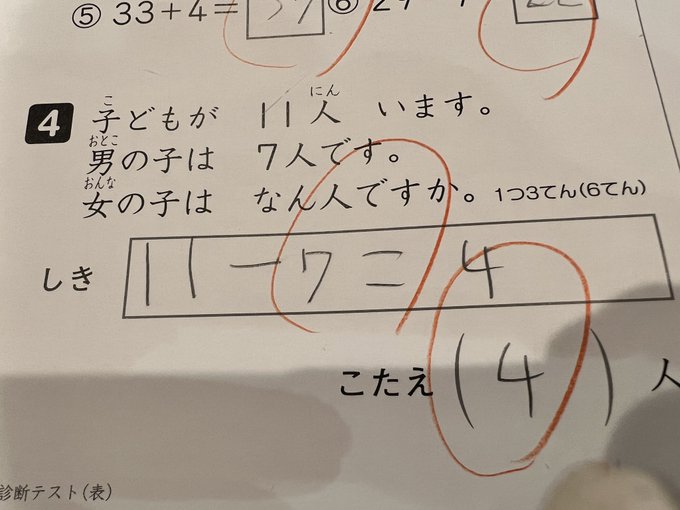 ⑤ 33+4= 37 ⑥ 29
4 子どもが 11人 います。
男の子は 7人です。
女の子は なん人ですか。 1つ3てん(6てん)
しき 11-7=4
こたえ (4)人
診断テスト(表)